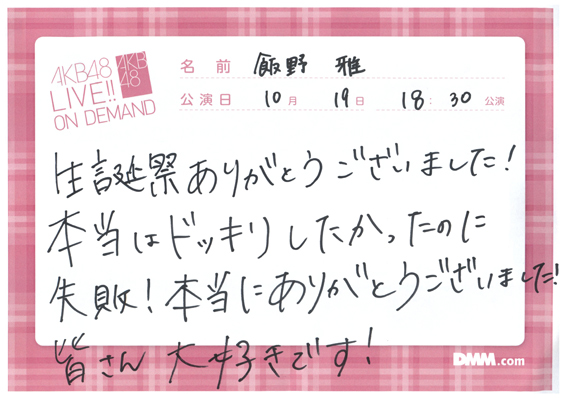 AKB48
LIVE!!
ON DEMAND
AKB
48
名前 飯野 雅
公演日 10月 19日 18:30公演
生誕祭ありがとうございました!
本当はドッキリしたかったのに
失敗!本当にありがとうございました!
皆さん大好きです!
DMM.com